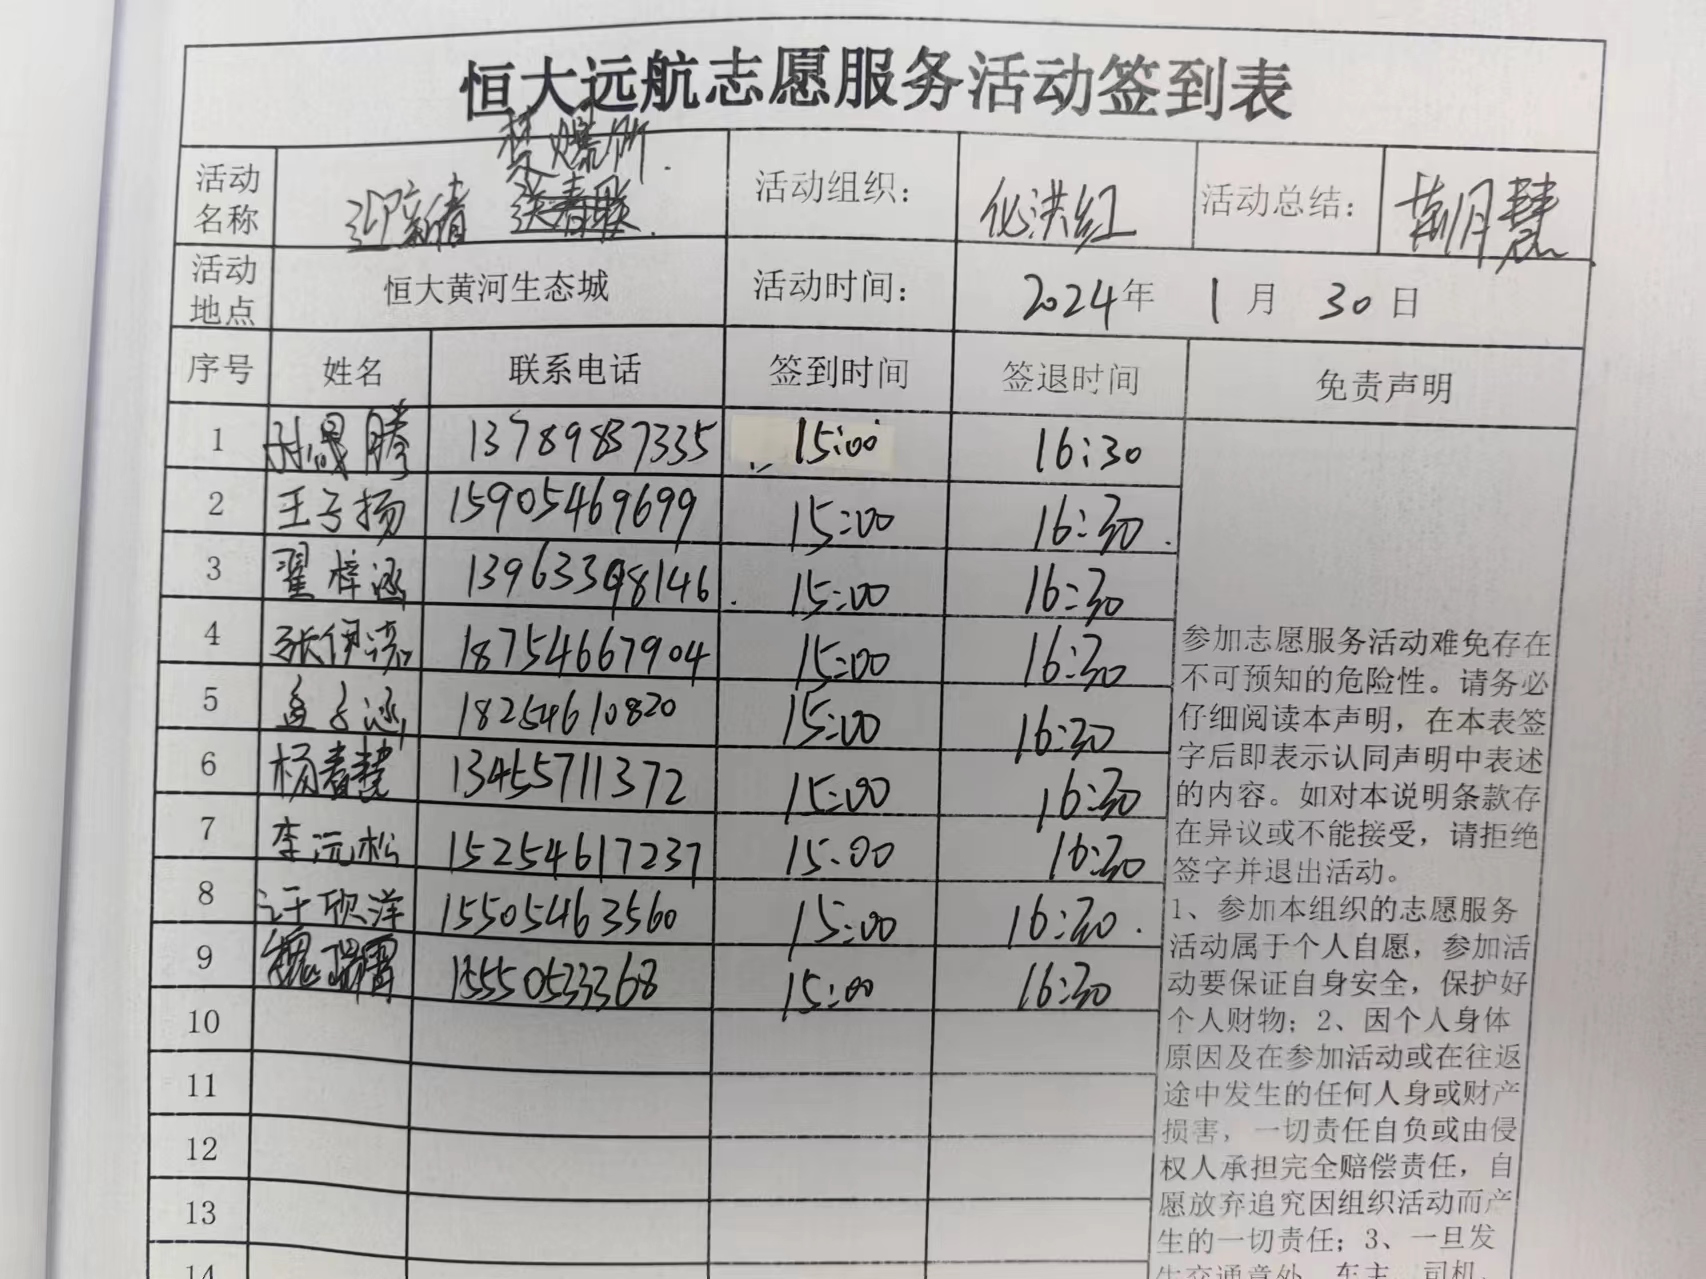 恒大远航志愿服务活动签到表
禁燃所
活动名称 迎新春 送春联 活动组织： 化洪红 活动总结： 胡月慧
活动地点 恒大黄河生态城 活动时间： 2024年 1月 30日
序号 姓名 联系电话 签到时间 签退时间 免责声明
1 孙晟腾 13789837335 15:00 16:30
2 王子扬 15905469699 15:00 16:30
3 翟梓涵 13963398146 15:00 16:30
4 张伊诺 18754667904 15:00 16:30
5 孟子涵 18254610820 15:00 16:30
6 杨春慧 13455711372 15:00 16:30
7 李沅松 15254617237 15:00 16:30
8 许欣洋 15505463560 15:00 16:30
9 魏瑞雪 15550533368 15:00 16:30
10
11
12
13
14
参加志愿服务活动难免存在
不可预知的危险性。请务必
仔细阅读本声明，在本表签
字后即表示认同声明中表述
的内容。如对本说明条款存
在异议或不能接受，请拒绝
签字并退出活动。
1、参加本组织的志愿服务
活动属于个人自愿，参加活
动要保证自身安全，保护好
个人财物；2、因个人身体
原因及在参加活动或在往返
途中发生的任何人身或财产
损害，一切责任自负或由侵
权人承担完全赔偿责任，自
愿放弃追究因组织活动而产
生的一切责任；3、一旦发
生交通意外，车主、司机、